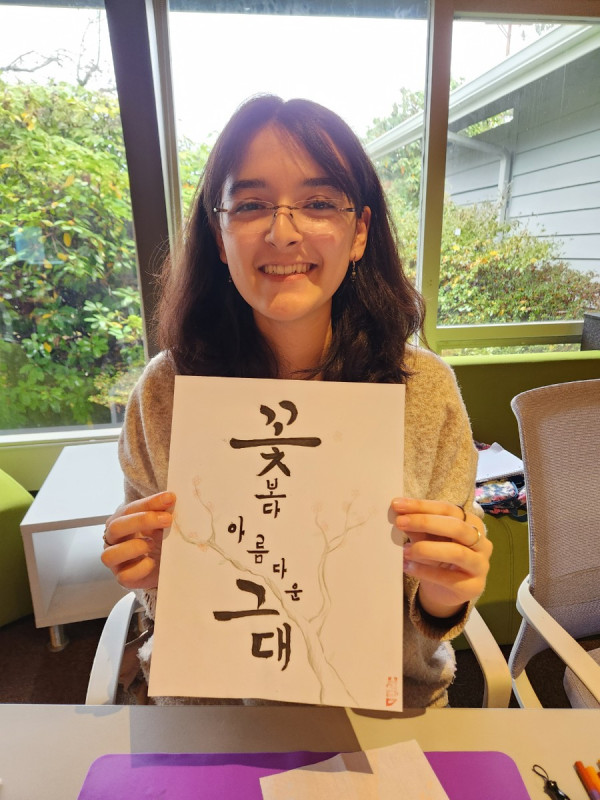 꽃
보다
아름다운
그대